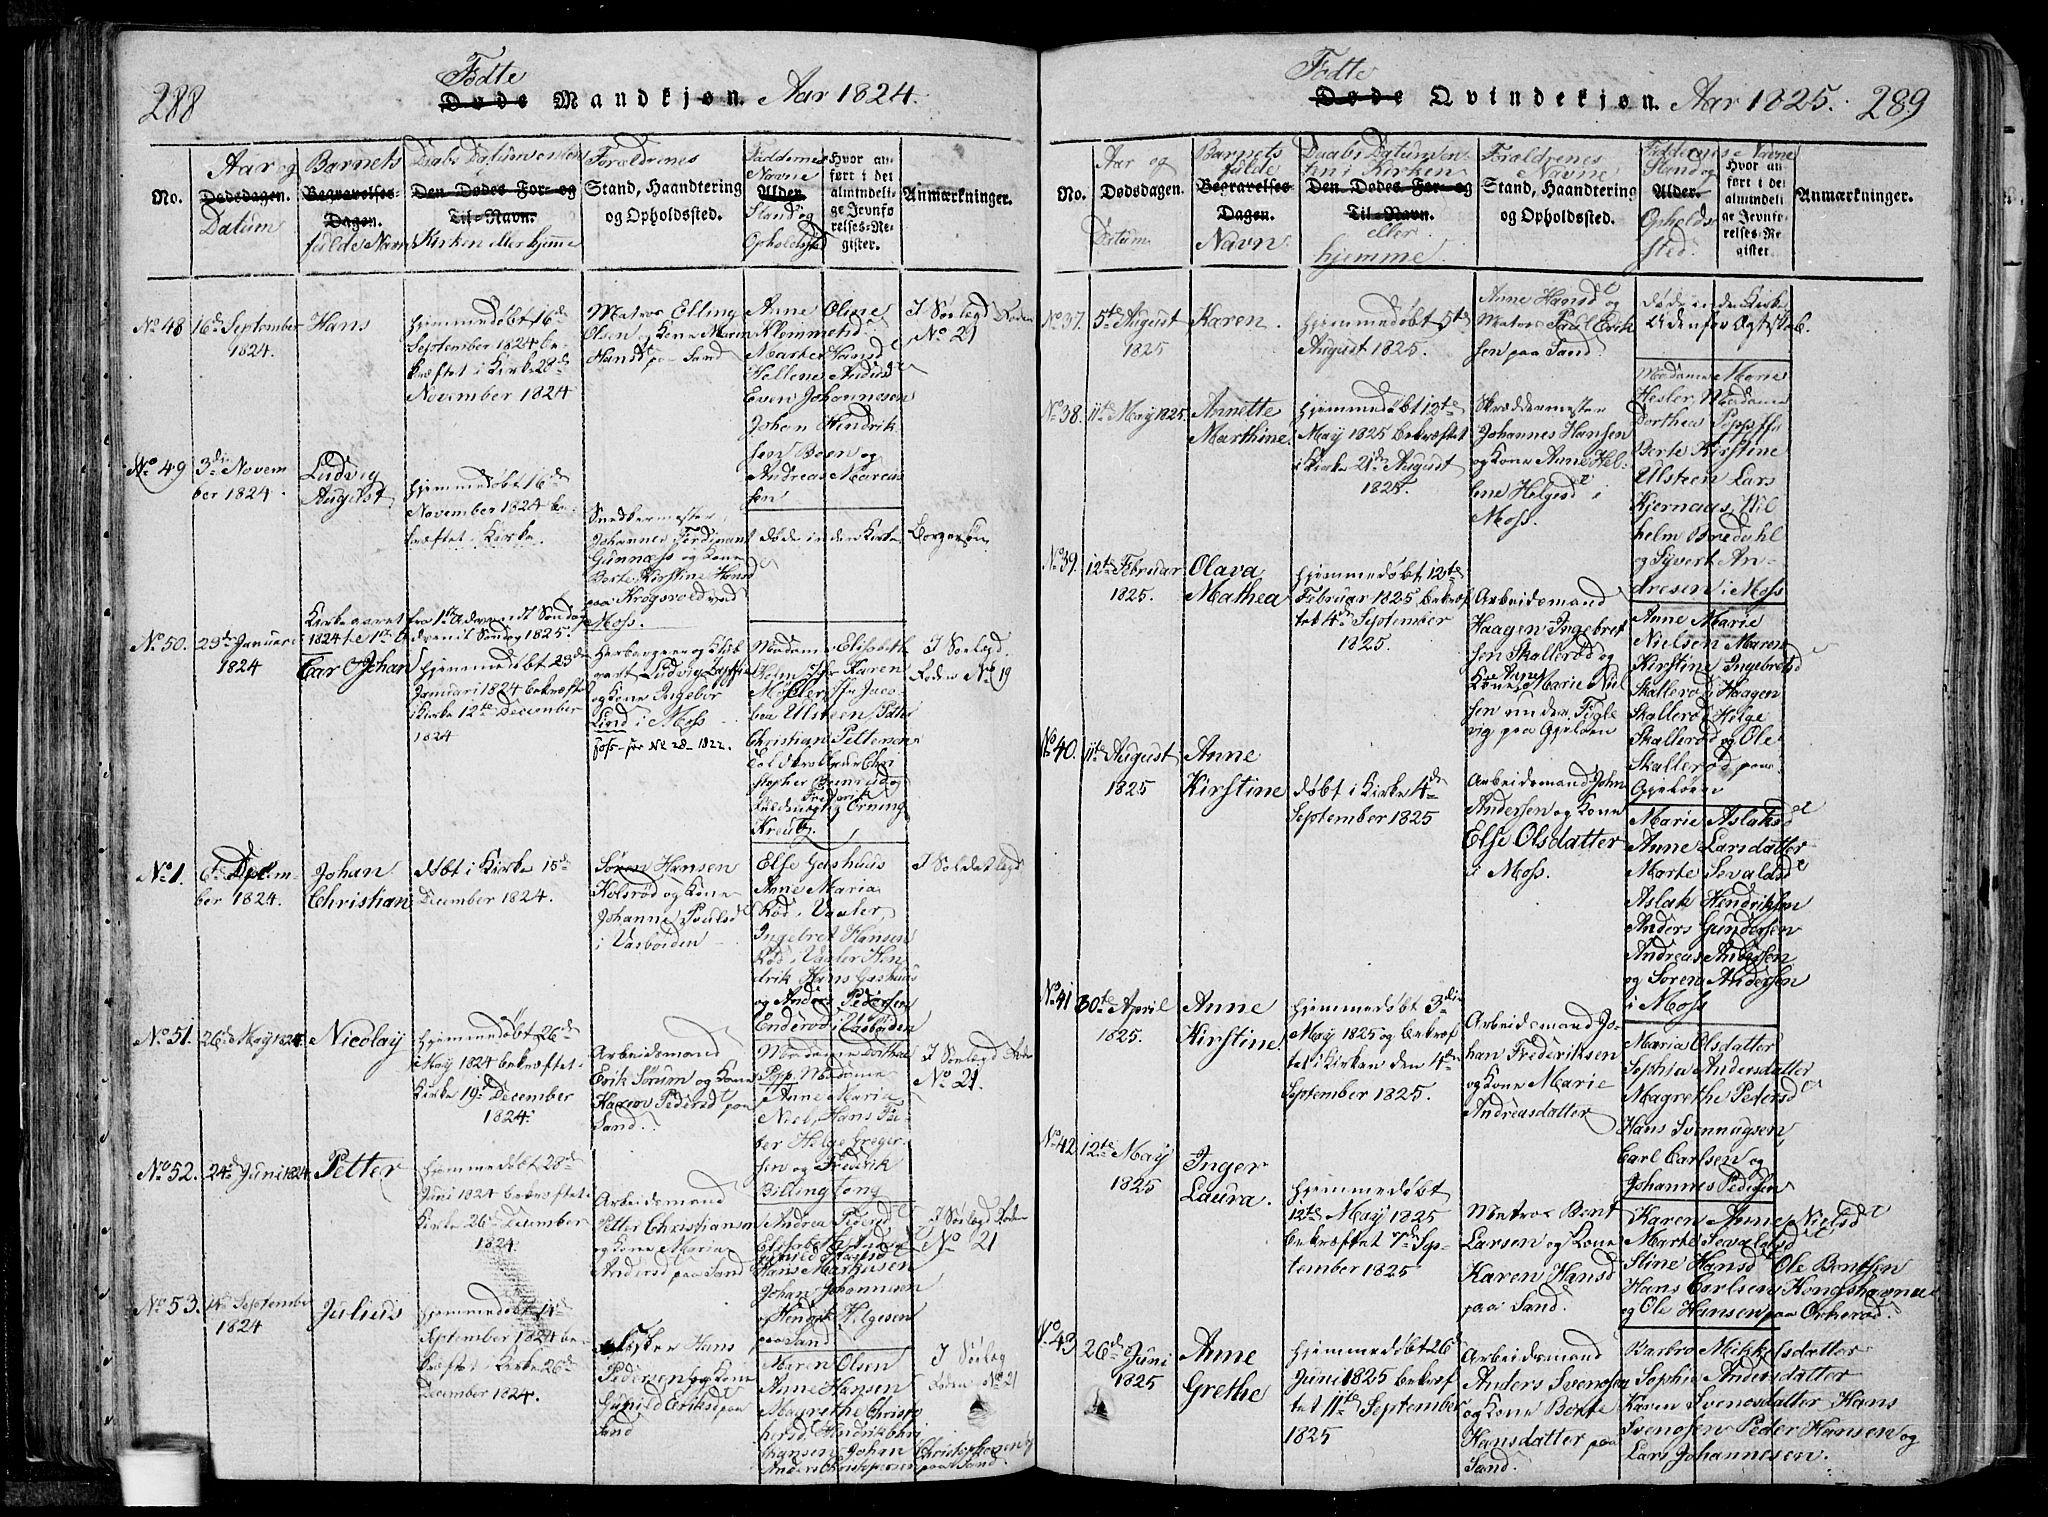 288
Fødte
Døde Mandkjøn. Aar 1824.
No.
Aar og
Dødsdagen.
Datum
Barnets
Begravelses-
Dagen.
fulde Navn
Daabs Datum enten
Den Dødes For- og
Til-Navn.
Kirken eller hjemme
Forældrenes
Stand, Haandtering
og Opholdssted.
Faddernes
Navne
Alder
Stand og
Opholdssted
Hvor an-
ført i det
almindeli-
ge Jevnfø-
relses-Re-
gister.
Anmærkninger.
No 48
16d September
1824.
Hans
Hjemmedøbt 16de
September 1824 be-
kræftet i Kirke 28de
November 1824
Matros Elling
Olsen og Kone Maren
Hansdt paa Sand
Anne Oline
Klemmetsd
Marthe Hansd
Hellene Andersd
Even Johannesen
Johan Hendrik-
sen Boen og
Andreas Marcus-
sen
I Søelegd Roden
No 21
No 49
3die Novem
ber 1824.
Ludvig
August
Hjemmedøbt 16de
November 1824 be-
kræftet i Kirke.
Snedkermester
Johannes Ferdinant
Gunness og Kone
Berte Kirstine Hansd
paa Krogsvold ved
Moss.
døde inden Kirke
Borgersøn
Kirkeaaret fra 1te Advent Søndag
1824 til 1te Advent Søndag 1825.
No. 50.
23de Januari
1824
Carl Johan
Hjemmedøbt 23de
Januari 1824 bekræftet
i Kirke 12te December
1824
og Kone Ingebor
Lind i Moss
Madame Elisabeth
Holm Jfr Karen
Møller Jfr Jaco-
bea Ullsteen Peter
Christian Pettersen
Frederik
Kreutz.
I Søelegd
Roden No 19
No 1.
6te Decem-
ber 1824.
Johan
Christian
døbt i Kirke 15de
December 1824.
Søren Hansen
Kolsrød og Kone
Johanne Povelsd
i Vasbøiden
Else Gashuus
Anne Maria
Rød i Vaaler
Ingebret Hansen
Rød i Vaaler Hen-
drik Hans Gashuus
og Anders Pedersen
Enderød i Vasbøiden
I Soldatlegd
No 51.
26de May 1824
Nicolay
Hjemmedøbt 26de
May 1824 bekræftet
Kirke 19de December
1824.
Arbeidsmand
Erik Sørum og Kone
Karen Pedersd paa
Sand.
Madame Dorthea
Popp, Madame
Anne Maria
Niel, Hans Fa-
ber Helge Greger-
sen og Frederik
Billington
I Søelegd Roden
No 21.
No 52.
24de Juni 1824
Petter
Hjemmedøbt 28de
Juni 1824 bekræftet
Kirke 26de December
1824.
Arbeidsmand
Petter Christiansen
og Kone Maria
Andersd paa Sand
Andrea Pedersd
Hans Markusen
Johan Johannesen
og Hendrik Helgesen
paa Sand
I Søelegd Roden
No 21
No 53.
14de September
1824
Julius
Hjemmedøbt 14de
September 1824 be-
kræftet i Kirke 26de
December 1824.
Hans
Pedersen og Kone
Gunild Eriksd paa
Sand
Maren Olsen
Anne Hansen
Magrethe Christo-
phersd Hendrik
Hansen Johan Christophersen og
Anders Christophersen paa Sand.
I Søeleg
Roden No 21
Fødte
Døde Qvindekjøn. Aar 1825. 289
No.
Aar og
Dødsdagen.
Datum
Barnets
fulde
Begravelses-
Dagen.
Navn
Daabs Datum en-
ten i Kirken
Den Dødes For- og
Til-Navn.
eller
hjemme
Forældrenes
Navne
Stand, Haandtering
og Opholdssted.
Faddernes Navne
Stand og
Alder.
Opholds
sted
Hvor an-
ført i det
almindeli-
ge Jevnfø-
relses-Re-
gister.
Anmærkninger.
No 37.
5te August
1825
Karen.
Hjemmedøbt 5te
August 1825.
Anne Hansdt og
Matros Paul Erik-
sen paa Sand.
Døde inden Kirke
Udenfor Ægteskab.
No 38.
11te May 1825.
Annette
Marthine
Hjemmedøbt 12te
May 1825 bekræftet
i Kirke 21de August
1825.
Skræddermester
Johannes Hansen
og Kone Anne Hel-
lene Helgesdt i
Moss.
Madame Marie
Hesler, Madame
Dorthea Popp Jfr
Berte Kirstine
Ullsteen Lars
Kjernaas, Wil-
helm Bredahl
og Syvert An-
dresen i Moss
No 39.
12te Februar
1825.
Olava
Mathea
Hjemmedøbt 12te
Februar 1825 bekræf-
tet 4de September
1825.
Arbeidsmand
Haagen Ingebret-
sen Skallerød og
Kone Anne Marie Niel-
sen under Fugle-
vig paa Gjeløen
Anne Marie
Nielsen Maren
Kirstine Ingebretsd
Skallerød Haagen
Skallerød Helge
Skallerød og Ole
Skallerød paa
Gjeløen
No 40.
11te August
1825
Anne
Kirstine
døbt i Kirke 4de
September 1825
Arbeidsmand John
Andersen og Kone
Else Olsdatter
i Moss.
Marie Aslaksdt
Anne Larsdatter
Marte Sevaldsdt
Aslak Hendriksen
Anders Gundersen
Andreas Andersen
og Søren Andersen
i Moss
No 41
30te April
1825.
Anne
Kirstine.
Hjemmedøbt 3die
May 1825 og bekræf-
tet i Kirken den 4de
September 1825.
Arbeidsmand Jo-
han Frederiksen
og Kone Marie
Andreasdatter
Maria Olsdatter
Sophia Andersdatter
Magrethe Pedersd
Hans Svennugsen
Carl Carlsen og
Johannes Pedersen
No 42
12te May
1825
Inger
Laura.
Hjemmedøbt
12te May 1825
bekræftet 7de Sep-
tember 1825
Matros Bent
Larsen og Kone
Karen Hansd
paa Sand.
Karen Anne Nielsdt
Marte Sevaldsdt
Stine Hansd Ole Bentsen
Hans Carlsen Kongshavne
og Ole Hansen paa Orkerød.
No 43
26de Juni
1825
Anne
Grethe
Hjemmedøbt 26de
Juni 1825 bekræf-
tet 11te September
1825
Arbeidsmand
Anders Svensen
og Kone Berte
Hansdatter paa
Sand.
Barbro Mikkelsdatter
Sophie Andersdatter
Karen Svensdatter Hans
Svensen Peder Hansen og
Lars Johannesen.